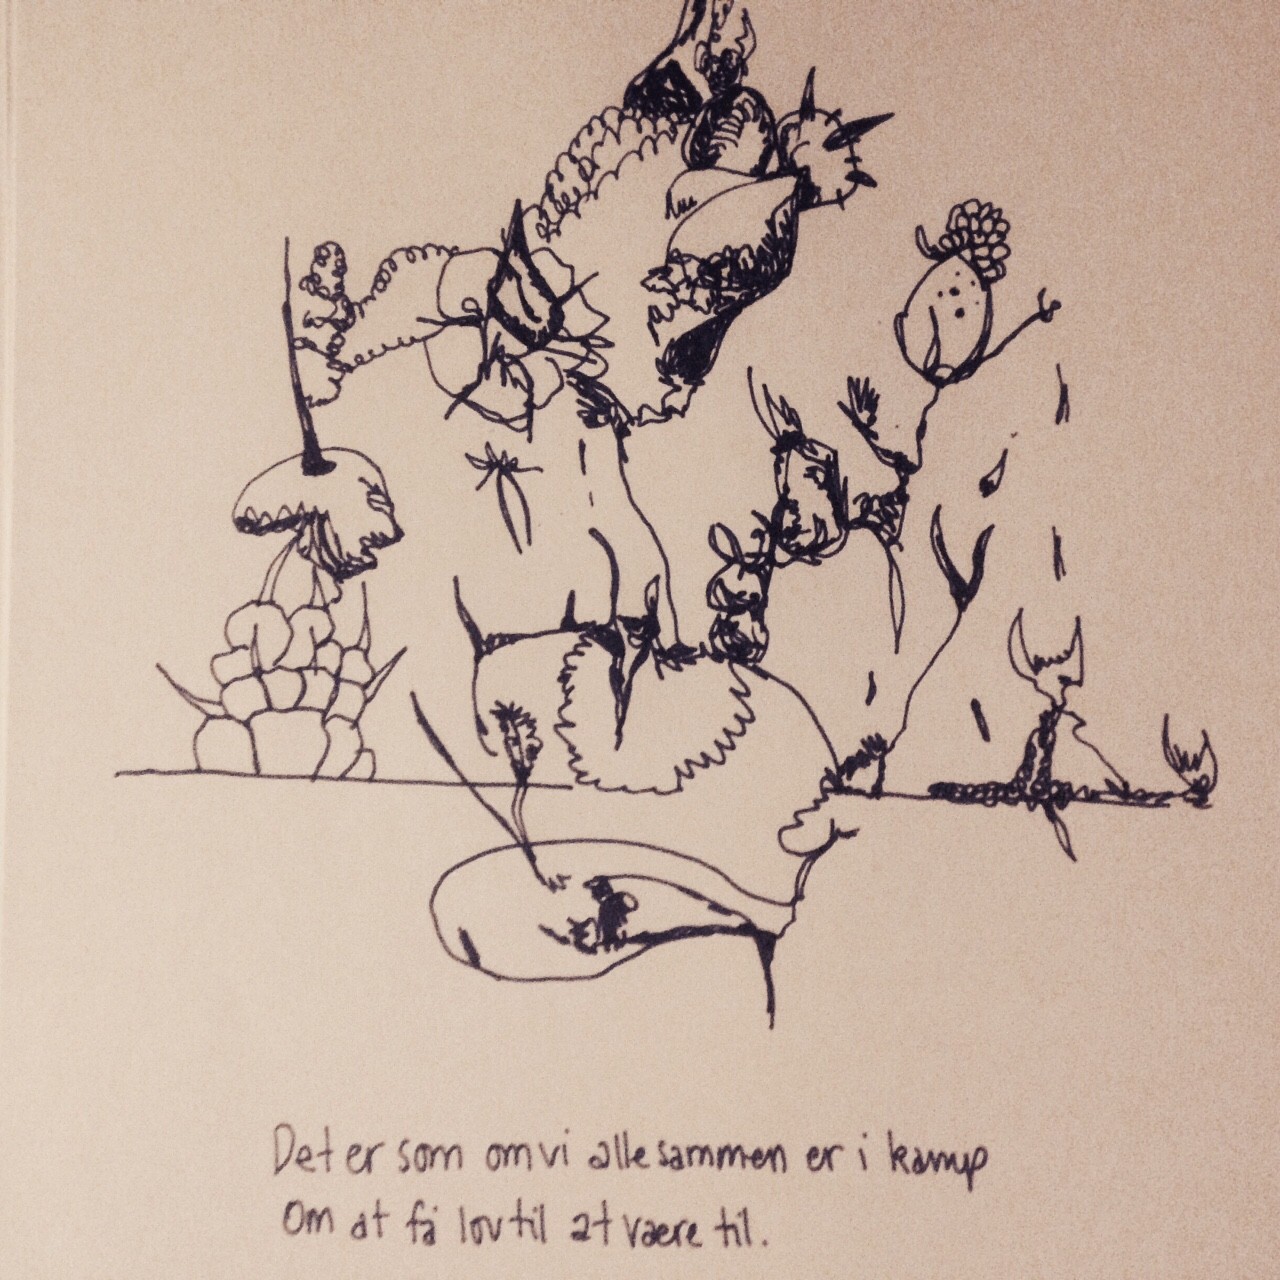 Det er som om vi allesammen er i kamp
Om at få lov til at være til.